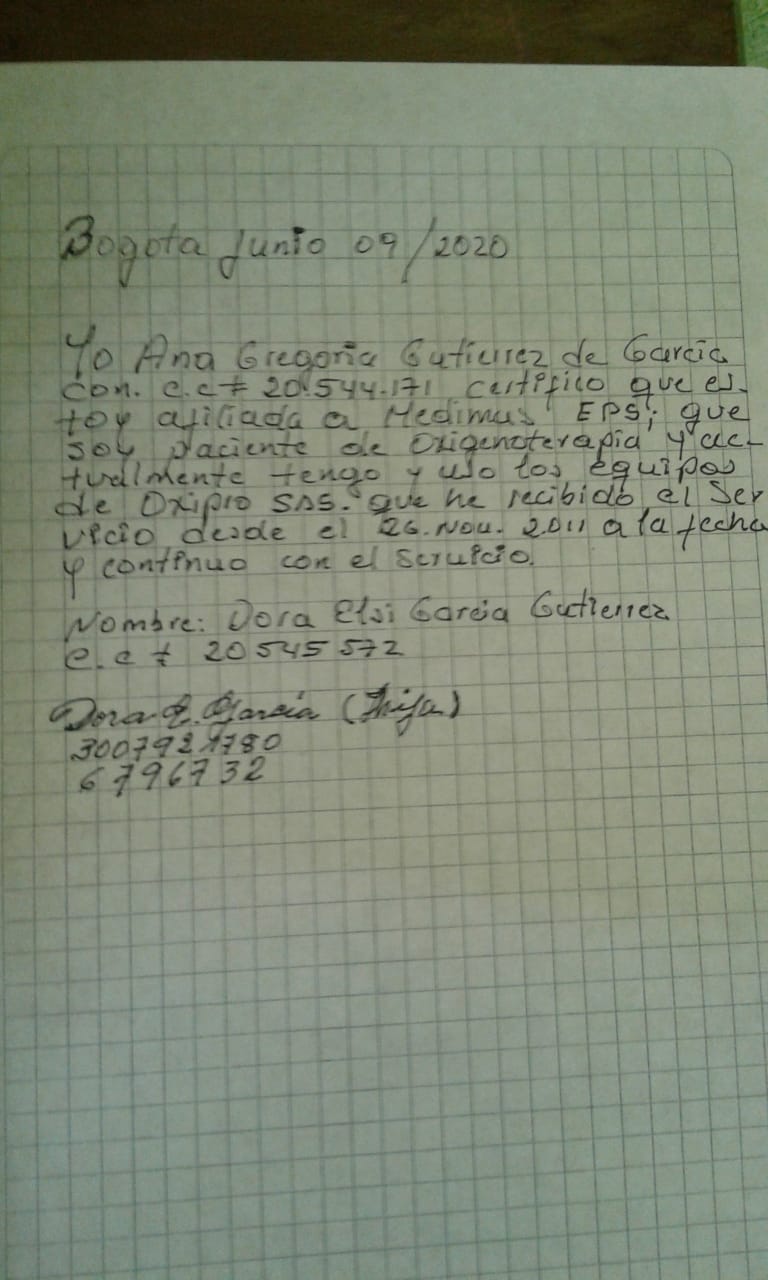 Bogota Junio 09/2020
Yo Ana Gregoria Gutierrez de Garcia
con. c.c # 20.544.171 certifico que es-
toy afiliada a Medimas EPS; que
soy paciente de Oxigenoterapia y ac-
tualmente tengo y uso los equipos
de Oxipro SAS. que he recibido el Ser
vicio desde el 26. Nov. 2.011 a la fecha
y continuo con el servicio.
Nombre: Dora Elsi Garcia Gutierrez
c.c # 20545572
Dora E. Garcia (Hija)
3007921780
6796732